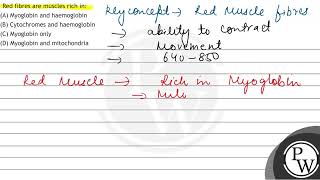 Red fibres are muscles rich in:
(A) Myoglobin and haemoglobin
(B) Cytochromes and haemoglobin
(C) Myoglobin only
(D) Myoglobin and mitochondria
Key concept → Red Muscle fibres
→ ability to contract
→ Movement
→ 640-850
Red Muscle → Rich in Myoglobin
→ Mito
PW